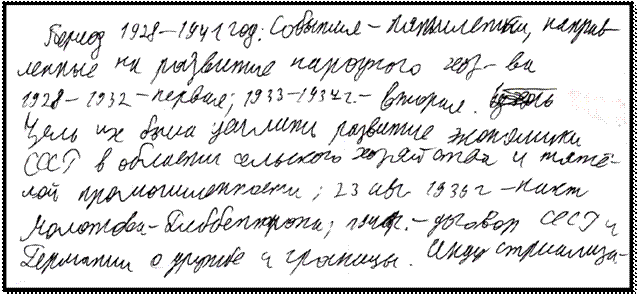 Период 1928–1941 год. События – пятилетки, направ-
ленные на развитие народного хоз-ва
1928–1932 – первая; 1933–1937г. – вторая.
Цель их была усилить развитие экономики
СССР в области сельского хозяйства и тяжё-
лой промышленности; 23 авг 1939г – пакт
Молотова-Риббентропа; – договор СССР и
Германии о дружбе и границы. Индустриализа-